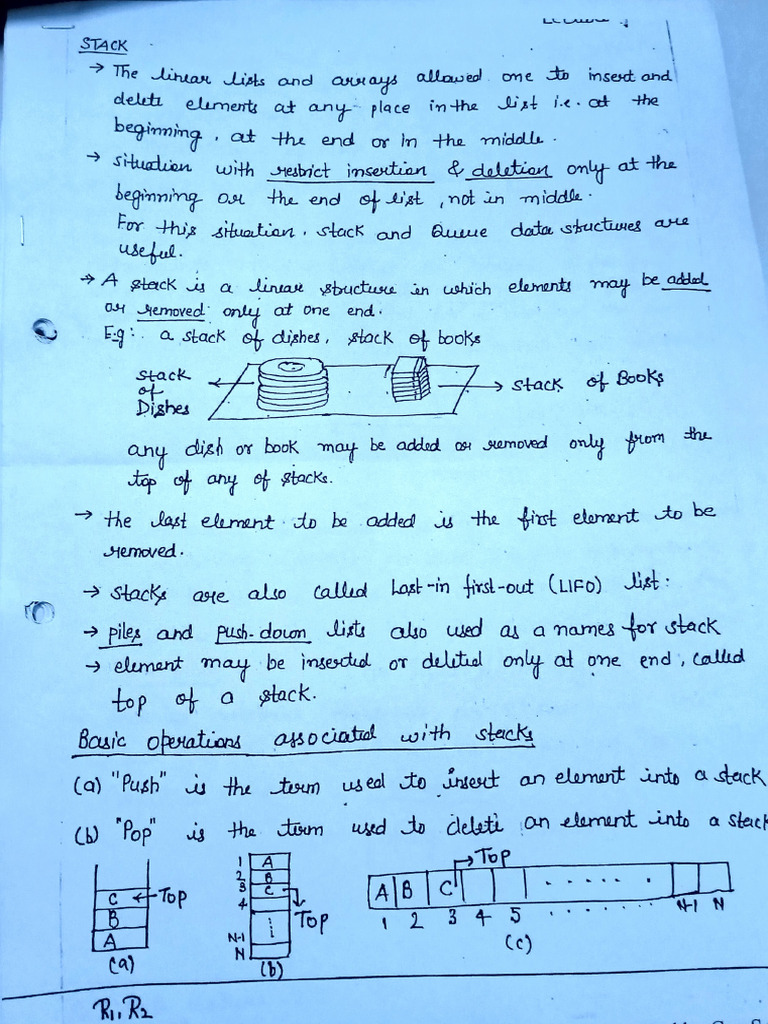 STACK
→ The linear lists and arrays allowed one to insert and
delete elements at any place in the list i.e. at the
beginning, at the end or in the middle.
→ situation with restrict insertion & deletion only at the
beginning or the end of list, not in middle.
For this situation, stack and Queue data structures are
useful.
→ A stack is a linear structure in which elements may be added
or removed only at one end.
E.g:. a stack of dishes, stack of books
stack
of
Dishes
stack of Books
any dish or book may be added or removed only from the
top of any of stacks.
→ the last element to be added is the first element to be
removed.
→ stacks are also called Last-in first-out (LIFO) list:
→ piles and push-down lists also used as a names for stack
→ element may be inserted or deleted only at one end, called
top of a stack.
Basic operations associated with stacks
(a) "Push" is the term used to insert an element into a stack
(b) "Pop" is the term used to delete an element into a stack
C ← Top
B
A
(a)
1 A
2 B
3 C
4
Top
N-1
N
(b)
Top
A B C . . . . . .
1 2 3 4 5 . . . . . . . N-1 N
(c)
R1, R2